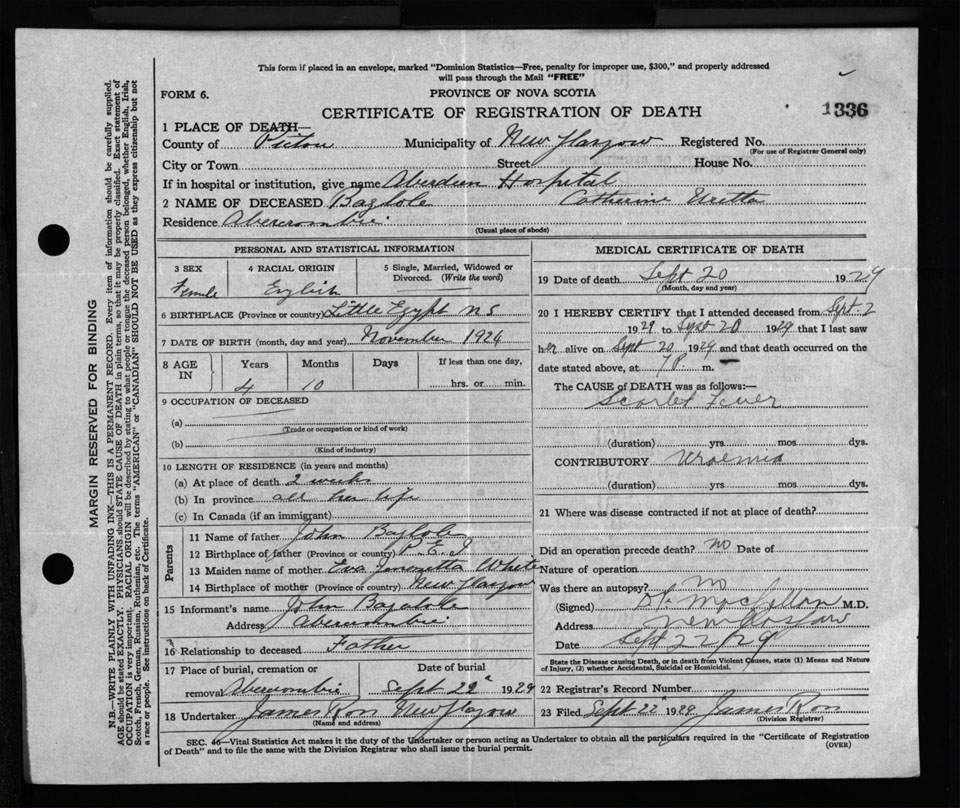 This form if placed in an envelope, marked "Dominion Statistics—Free, penalty for improper use, $300," and properly addressed
will pass through the Mail "FREE"
FORM 6.
PROVINCE OF NOVA SCOTIA
CERTIFICATE OF REGISTRATION OF DEATH
1336
1 PLACE OF DEATH—
County of Pictou Municipality of New Glasgow Registered No.
(For use of Registrar General only)
City or Town Street House No.
If in hospital or institution, give name Aberdeen Hospital
2 NAME OF DECEASED Baglole Catherine
Residence Abercrombie
(Usual place of abode)
MARGIN RESERVED FOR BINDING
N.B.—WRITE PLAINLY WITH UNFADING INK—THIS IS A PERMANENT RECORD. Every item of information should be carefully supplied.
AGE should be stated EXACTLY. PHYSICIANS should STATE CAUSE OF DEATH in plain terms, so that it may be properly classified. Exact statement of
OCCUPATION is very important. RACIAL ORIGIN will be described by stating to what people or tongue the deceased person belonged, whether English, Irish,
Scotch, French, German, Russian, Ruthenian, etc. The terms "AMERICAN" or "CANADIAN" SHOULD NOT BE USED as they express citizenship but not
a race or people. See instructions on back of Certificate.
PERSONAL AND STATISTICAL INFORMATION
3 SEX 4 RACIAL ORIGIN 5 Single, Married, Widowed or
Divorced. (Write the word)
Female English
6 BIRTHPLACE (Province or country) Little Egypt N S
7 DATE OF BIRTH (month, day and year) November 1924
8 AGE IN Years Months Days If less than one day,
4 10 hrs. or min.
9 OCCUPATION OF DECEASED
(a)
(Trade or occupation or kind of work)
(b)
(Kind of industry)
10 LENGTH OF RESIDENCE (in years and months)
(a) At place of death 2 weeks
(b) In province all her life
(c) In Canada (if an immigrant)
Parents
11 Name of father John Baglole
12 Birthplace of father (Province or country) P.E.I
13 Maiden name of mother Eva White
14 Birthplace of mother (Province or country) New Glasgow
15 Informant's name John Baglole
Address Abercrombie
16 Relationship to deceased Father
17 Place of burial, cremation or Date of burial
removal Abercrombie Sept 22 1929
18 Undertaker James Ross New Glasgow
(Name and address)
MEDICAL CERTIFICATE OF DEATH
19 Date of death Sept 20 1929
(Month, day and year)
20 I HEREBY CERTIFY that I attended deceased from Sept. 2
1929 to Sept 20 1929 that I last saw
her alive on Sept 20 1929 and that death occurred on the
date stated above, at 7 P. m.
The CAUSE of DEATH was as follows:—
Scarlet Fever
(duration) yrs mos dys.
CONTRIBUTORY Uraemia
(duration) yrs. mos. dys.
21 Where was disease contracted if not at place of death?
Did an operation precede death? no Date of
Nature of operation
Was there an autopsy? no
(Signed) M.D.
Address New Glasgow
Date Sept 22/29
State the Disease causing Death, or in death from Violent Causes, state (1) Means and Nature
of Injury, (2) whether Accidental, Suicidal or Homicidal.
22 Registrar's Record Number
23 Filed Sept 22 1929 James Ross
(Division Registrar)
SEC. 46—Vital Statistics Act makes it the duty of the Undertaker or person acting as Undertaker to obtain all the particulars required in the "Certificate of Registration
of Death" and to file the same with the Division Registrar who shall issue the burial permit. (OVER)